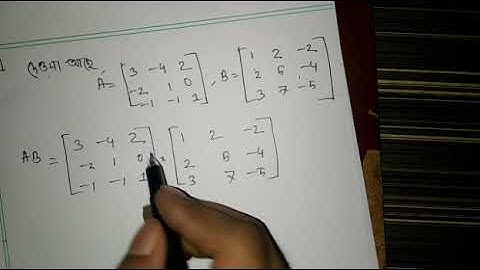 দেওয়া আছে,
A = [3 -4 2
-2 1 0
-1 -1 1], B = [1 2 -2
2 5 -4
3 7 -5]
AB = [3 -4 2
-2 1 0
-1 -1 1] [1 2 -2
2 5 -4
3 7 -5]